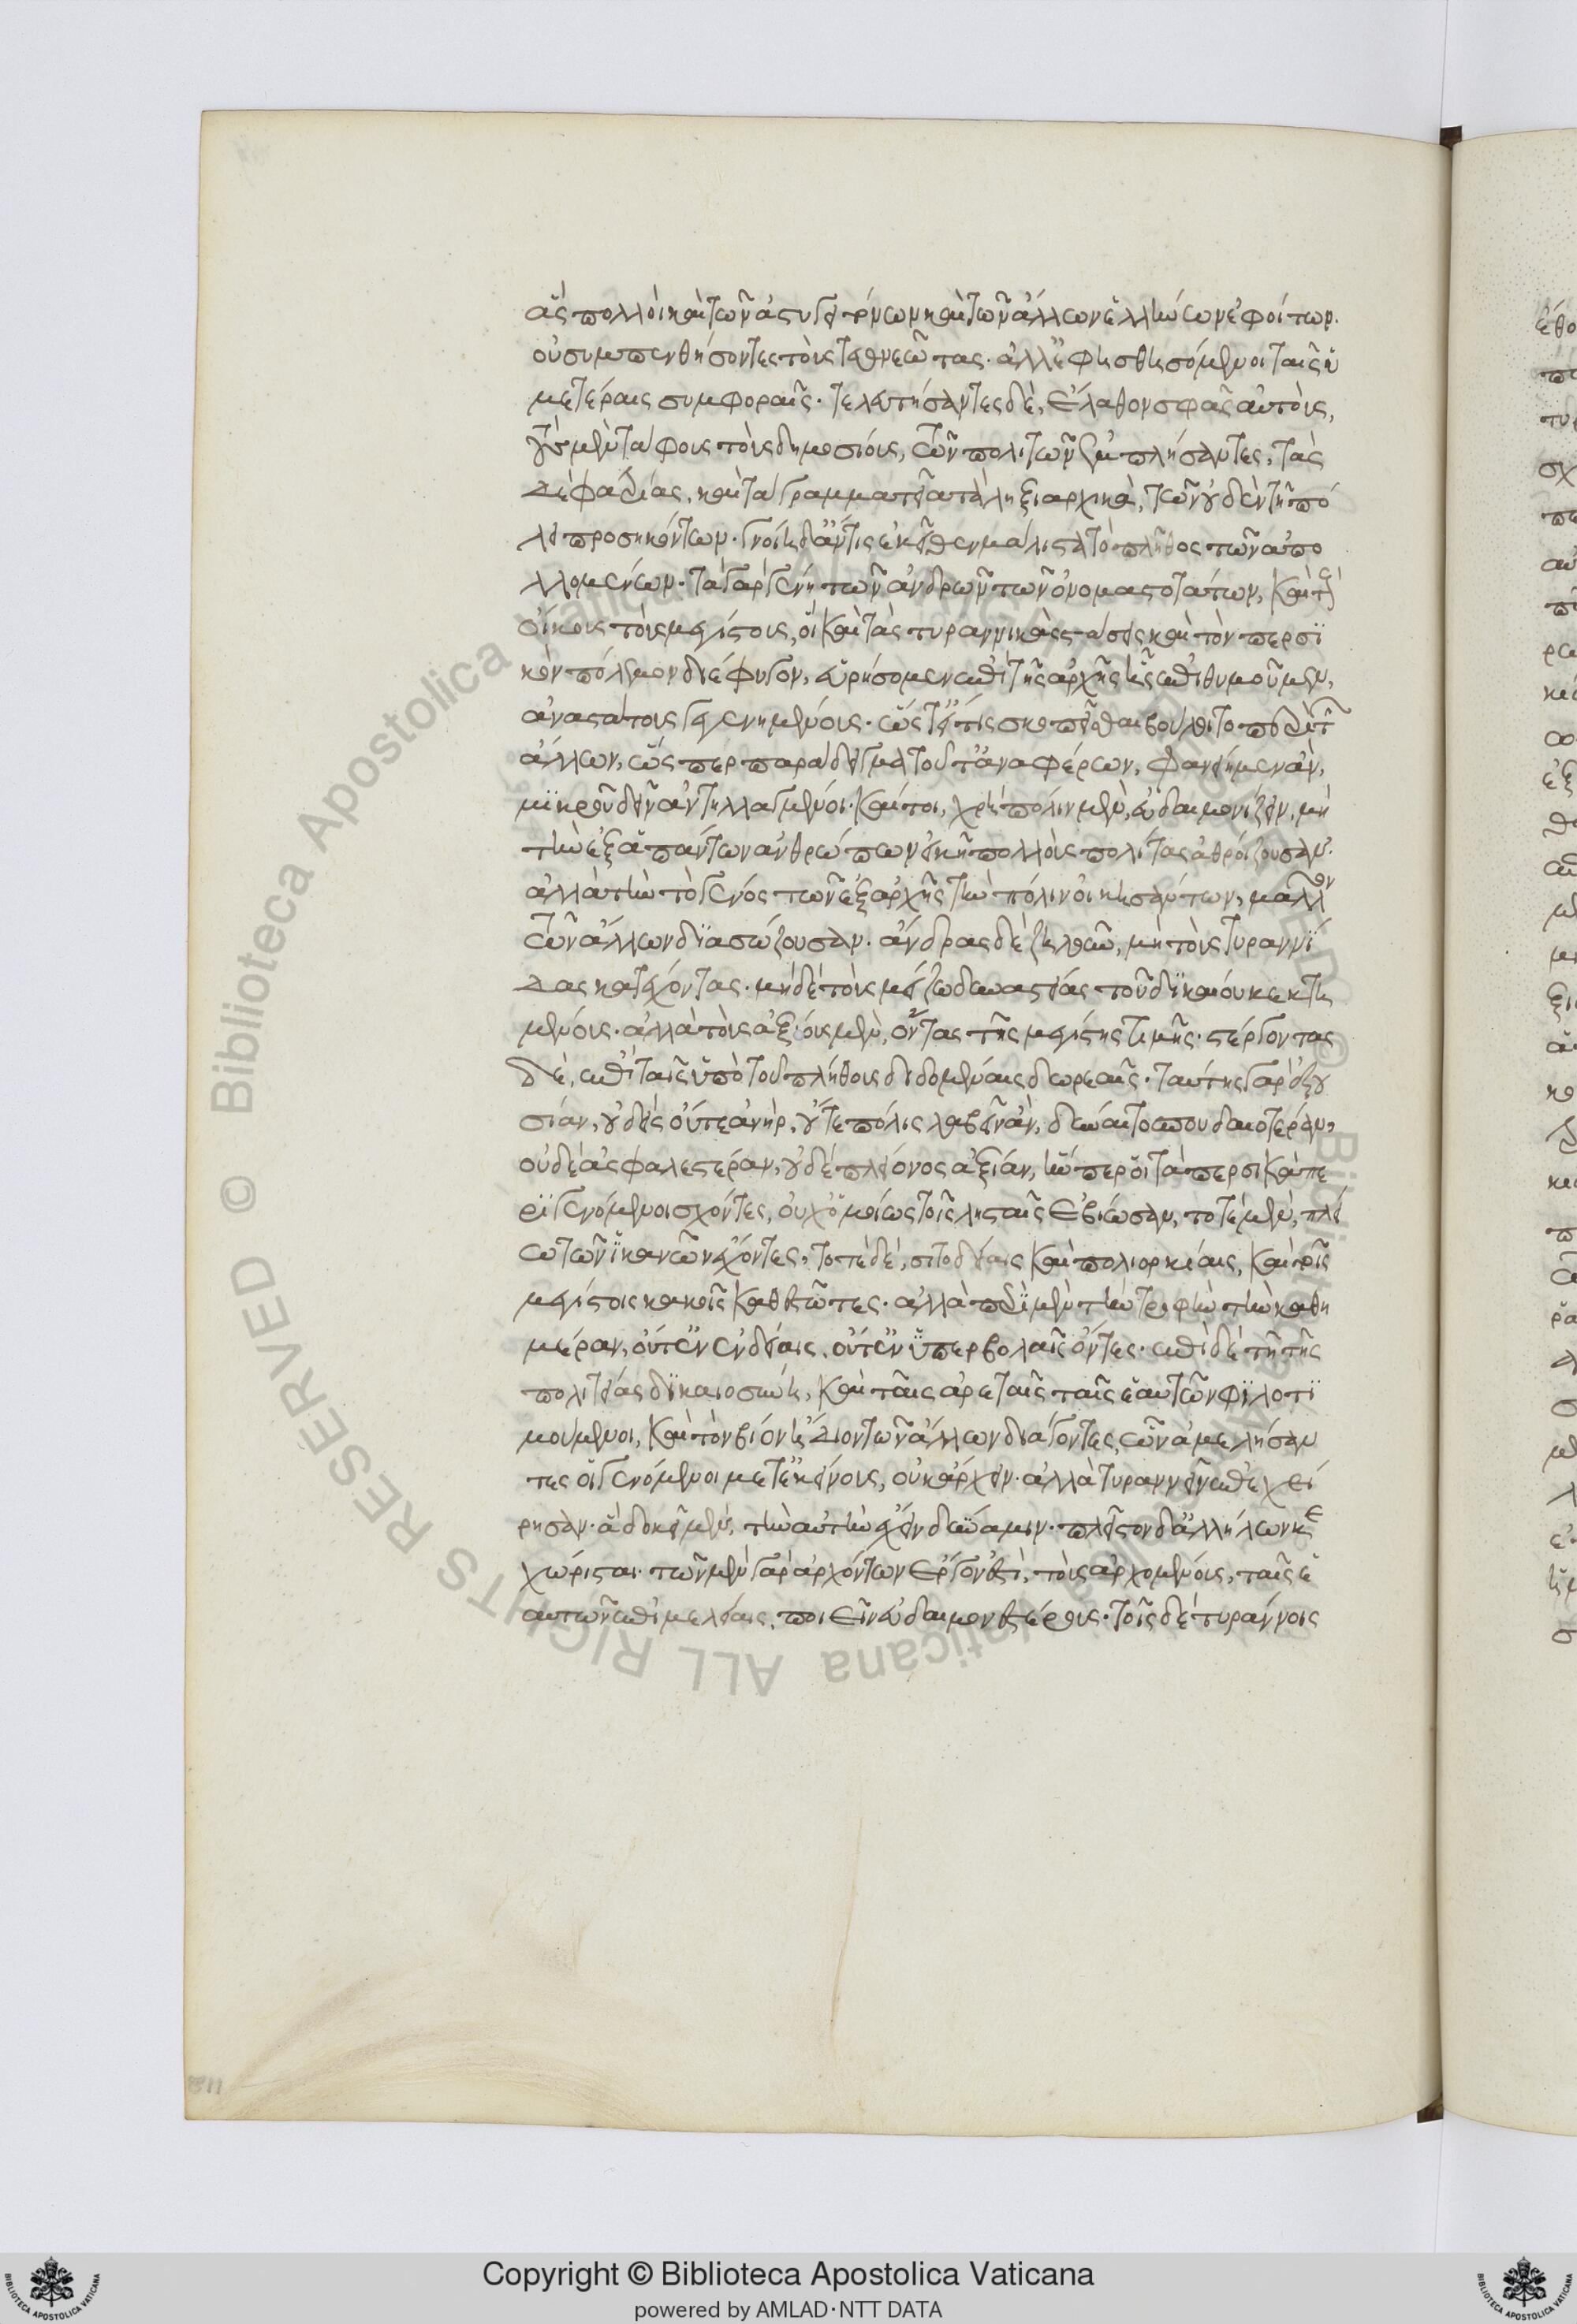 ἃς πολλοὶ καὶ τῶν ἀστυγειτόνων καὶ τῶν ἄλλων ἑλλήνων ἐφοίτων·
οὐ συμπενθήσοντες τοὺς τεθνεῶτας· ἀλλ' ἐφησθησόμενοι ταῖς ἡ
μετέραις συμφοραῖς· τελευτήσαντες δὲ, ἔλαθον σφᾶς αὐτοὺς,
τοὺς μὲν τάφους τοὺς δημοσίους, τῶν πολιτῶν ἐμπλήσαντες, τὰς
δὲ φατρίας, καὶ τὰ γραμματεῖα τὰ ληξιαρχικὰ, τῶν οὐδὲν τῇ πό
λει προσηκόντων· γνοίη δ' ἄν τις ἐκεῖθεν μάλιστα τὸ πλῆθος τῶν ἀπο
λλομένων· τὰ γὰρ γένη τῶν ἀνδρῶν τῶν ὀνομαστοτάτων, καὶ τοὺς
οἴκους τοὺς μεγίστους, οἳ καὶ τὰς τυραννικὰς στάσεις καὶ τὸν περσι
κὸν πόλεμον διέφυγον, εὑρήσομεν ἐπὶ τῆς ἀρχῆς ἧς ἐπιθυμοῦμεν,
ἀναστάτους γεγενημένους· ὥστ' εἴ τις σκοπεῖσθαι βούλοιτο περὶ τῶν
ἄλλων, ὥσπερ παράδειγμα τοῦτ' ἀναφέρων, φανείημεν ἂν,
μικροῦ δεῖν ἀντηλλαγμένοι· καίτοι, χρὴ πόλιν μὲν, εὐδαιμονίζειν, μὴ
τὴν ἐξ ἁπάντων ἀνθρώπων εἰκῆ πολλοὺς πολίτας ἀθροίζουσαν·
ἀλλὰ τὴν τὸ γένος τῶν ἐξ ἀρχῆς τὴν πόλιν οἰκησάντων, μᾶλλον
τῶν ἄλλων διασώζουσαν· ἄνδρας δὲ ζηλοῦν, μὴ τοὺς τυραννί
δας κατέχοντας· μηδὲ τοὺς μείζω δυναστείας τοῦ δικαίου κεκτη
μένους· ἀλλὰ τοὺς ἀξίους μὲν, ὄντας τῆς μεγίστης τιμῆς· στέργοντας
δὲ, ἐπὶ ταῖς ὑπὸ τοῦ πλήθους διδομέναις δωρεαῖς· ταύτης γὰρ ἐξου
σίαν, οὐδεὶς οὔτε ἀνὴρ, οὔτε πόλις λαβεῖν ἂν, δύναιτο σπουδαιοτέραν,
οὐδὲ ἀσφαλεστέραν, οὐδὲ πλείονος ἀξίαν, ἥνπερ οἱ τὰ περσικὰ πε
ρὶ γενόμενοι σχόντες, οὐχ ὁμοίως τοῖς λησταῖς ἐβίωσαν, τοτὲ μὲν, πλεί
ω τῶν ἱκανῶν ἔχοντες, τοτὲ δὲ, σιτοδείαις καὶ πολιορκίαις, καὶ τοῖς
μεγίστοις κακοῖς καθεστῶτες· ἀλλὰ περὶ μὲν τὴν τροφὴν τὴν καθη
μέραν, οὔτ' ἐν ἐνδείαις, οὔτ' ἐν ὑπερβολαῖς ὄντες· ἐπὶ δὲ τῇ τῆς
πολιτείας δικαιοσύνῃ, καὶ ταῖς ἀρεταῖς ταῖς ἑαυτῶν φιλοτι
μούμενοι, καὶ τὸν βίον ἥδιον τῶν ἄλλων διάγοντες, ὧν ἀμελήσαν
τες οἱ γενόμενοι μετ' ἐκείνους, οὐκ ἄρχειν· ἀλλὰ τυραννεῖν ἐπεχεί
ρησαν· ἃ δοκεῖ μὲν, τὴν αὐτὴν ἔχειν δύναμιν· πλεῖστον δ' ἀλλήλων κε
χώρισται· τῶν μὲν γὰρ ἀρχόντων ἔργον ἐστὶ, τοὺς ἀρχομένους, ταῖς ἑ
αυτῶν ἐπιμελείαις, ποιεῖν εὐδαιμονεστέρους· τοῖς δὲ τυράννοις